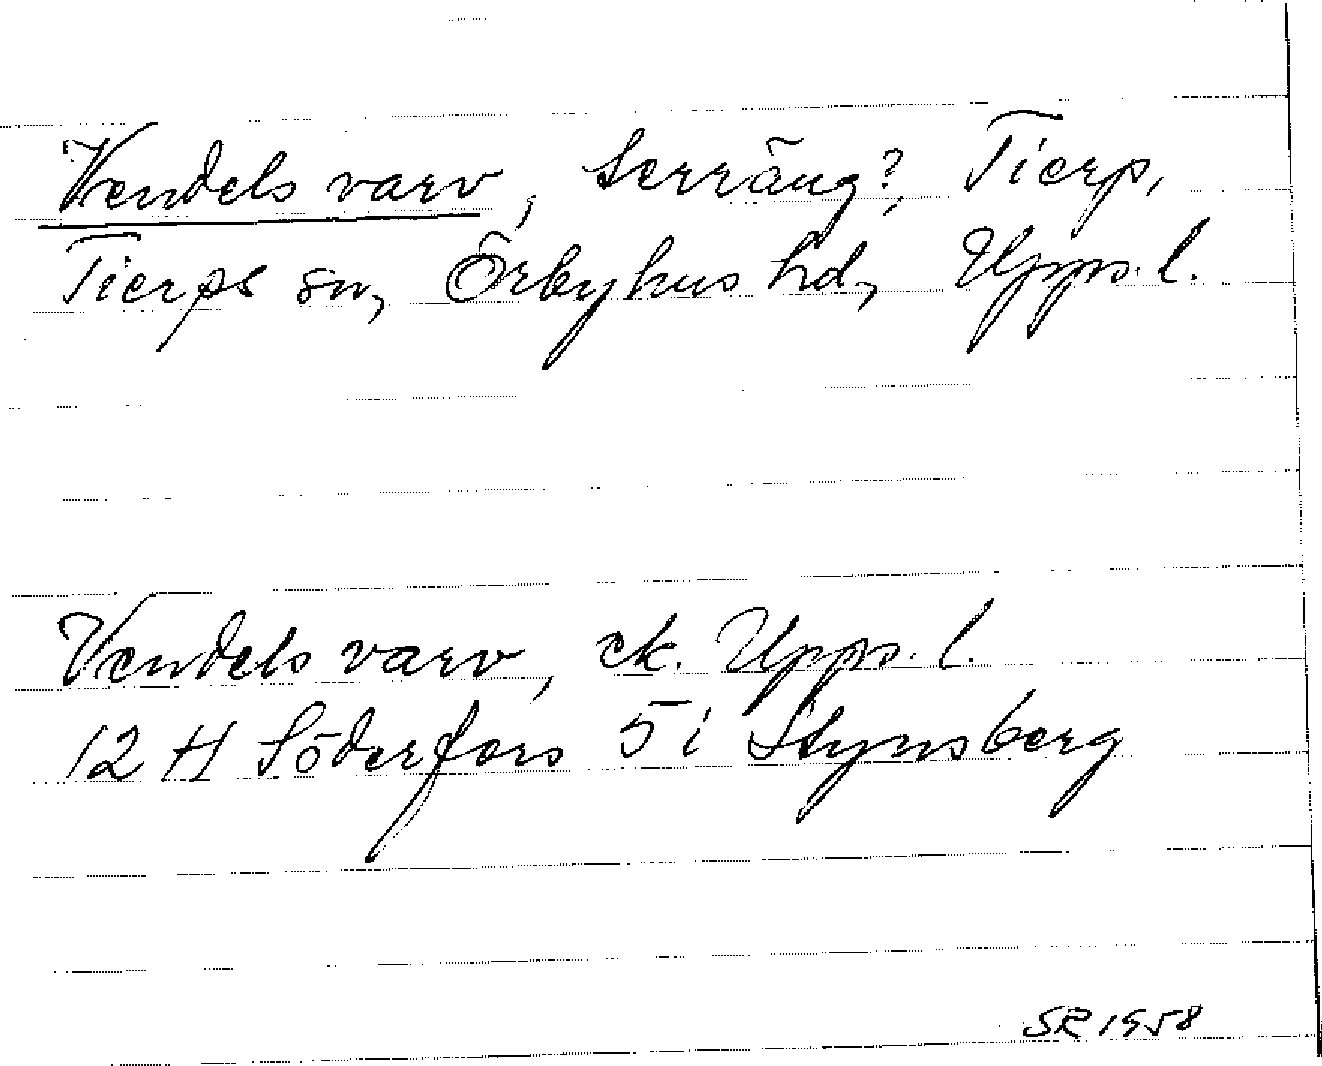 Vendels varv, terräng?, Tierp,
Tierps sn, Örbyhus hd, Upps. l.
Vendels varv, ek. Upps. l.
12 H Söderfors 5 i Stynsberg
SR 1958